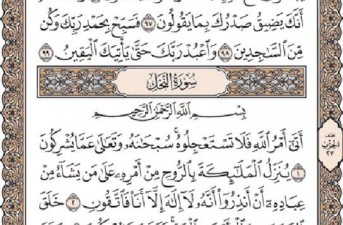 أَنَّكَ يَضِيقُ صَدْرُكَ بِمَا يَقُولُونَ ٩٧ فَسَبِّحْ بِحَمْدِ رَبِّكَ وَكُن
مِّنَ ٱلسَّٰجِدِينَ ٩٨ وَٱعْبُدْ رَبَّكَ حَتَّىٰ يَأْتِيَكَ ٱلْيَقِينُ ٩٩
سُورَةُ النَّحْلِ
بِسْمِ ٱللَّهِ ٱلرَّحْمَٰنِ ٱلرَّحِيمِ
أَتَىٰٓ أَمْرُ ٱللَّهِ فَلَا تَسْتَعْجِلُوهُ سُبْحَٰنَهُۥ وَتَعَٰلَىٰ عَمَّا يُشْرِكُونَ
١ يُنَزِّلُ ٱلْمَلَٰٓئِكَةَ بِٱلرُّوحِ مِنْ أَمْرِهِۦ عَلَىٰ مَن يَشَآءُ مِنْ
عِبَادِهِۦٓ أَنْ أَنذِرُوٓا۟ أَنَّهُۥ لَآ إِلَٰهَ إِلَّآ أَنَا۠ فَٱتَّقُونِ ٢ خَلَقَ
الحزب
٢٧